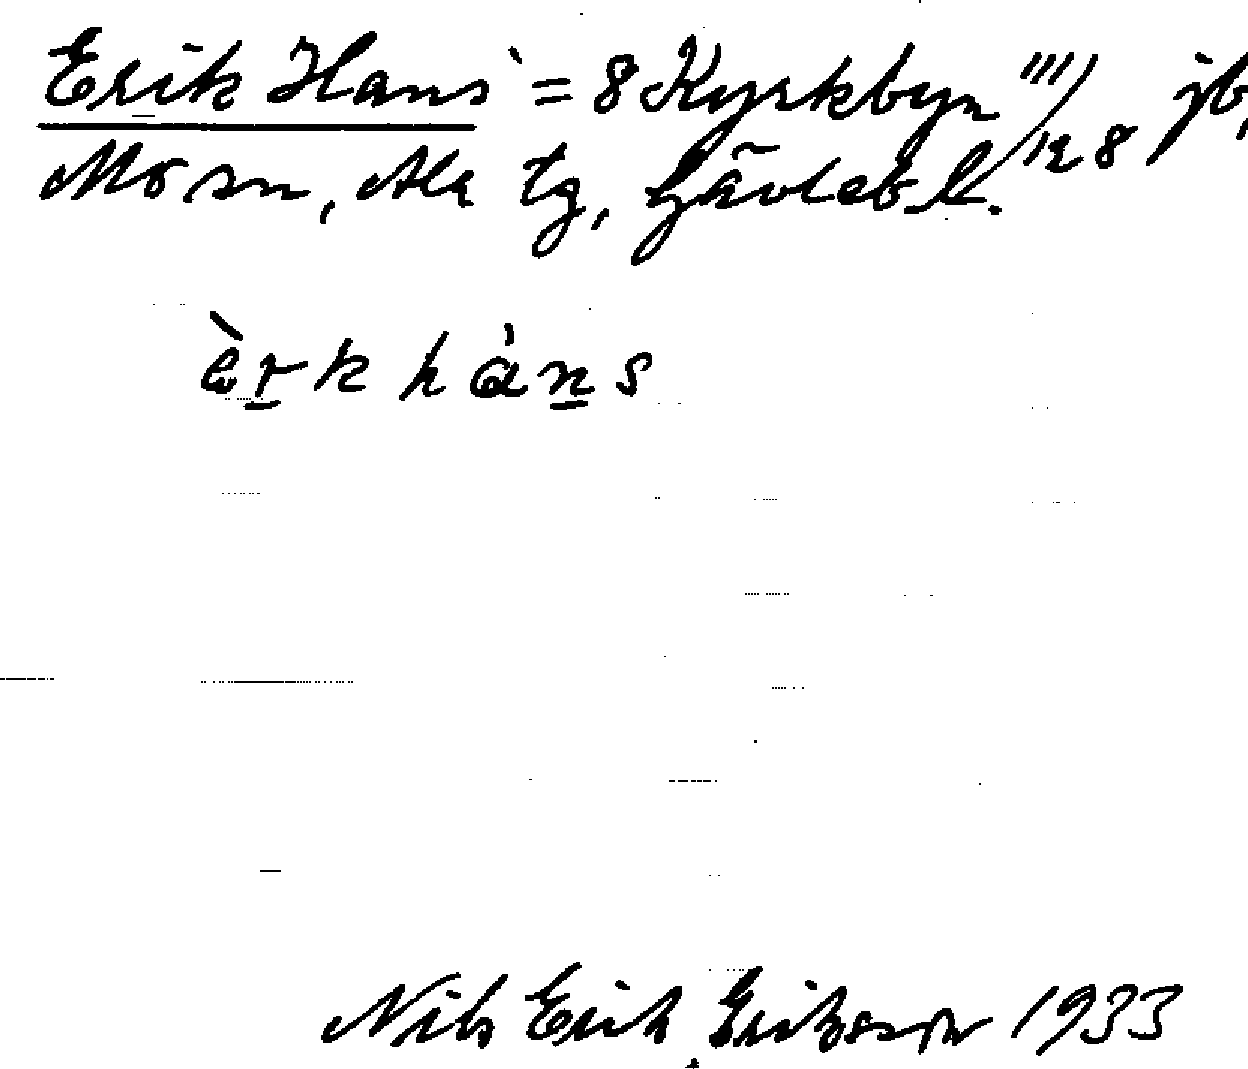 Erik Hans` = 8 Kyrkbyn ''''/128 jb,
Mo sn, Ala tg, Gävleb.l.
èrk háns
Nils Erik Eriksson 1933